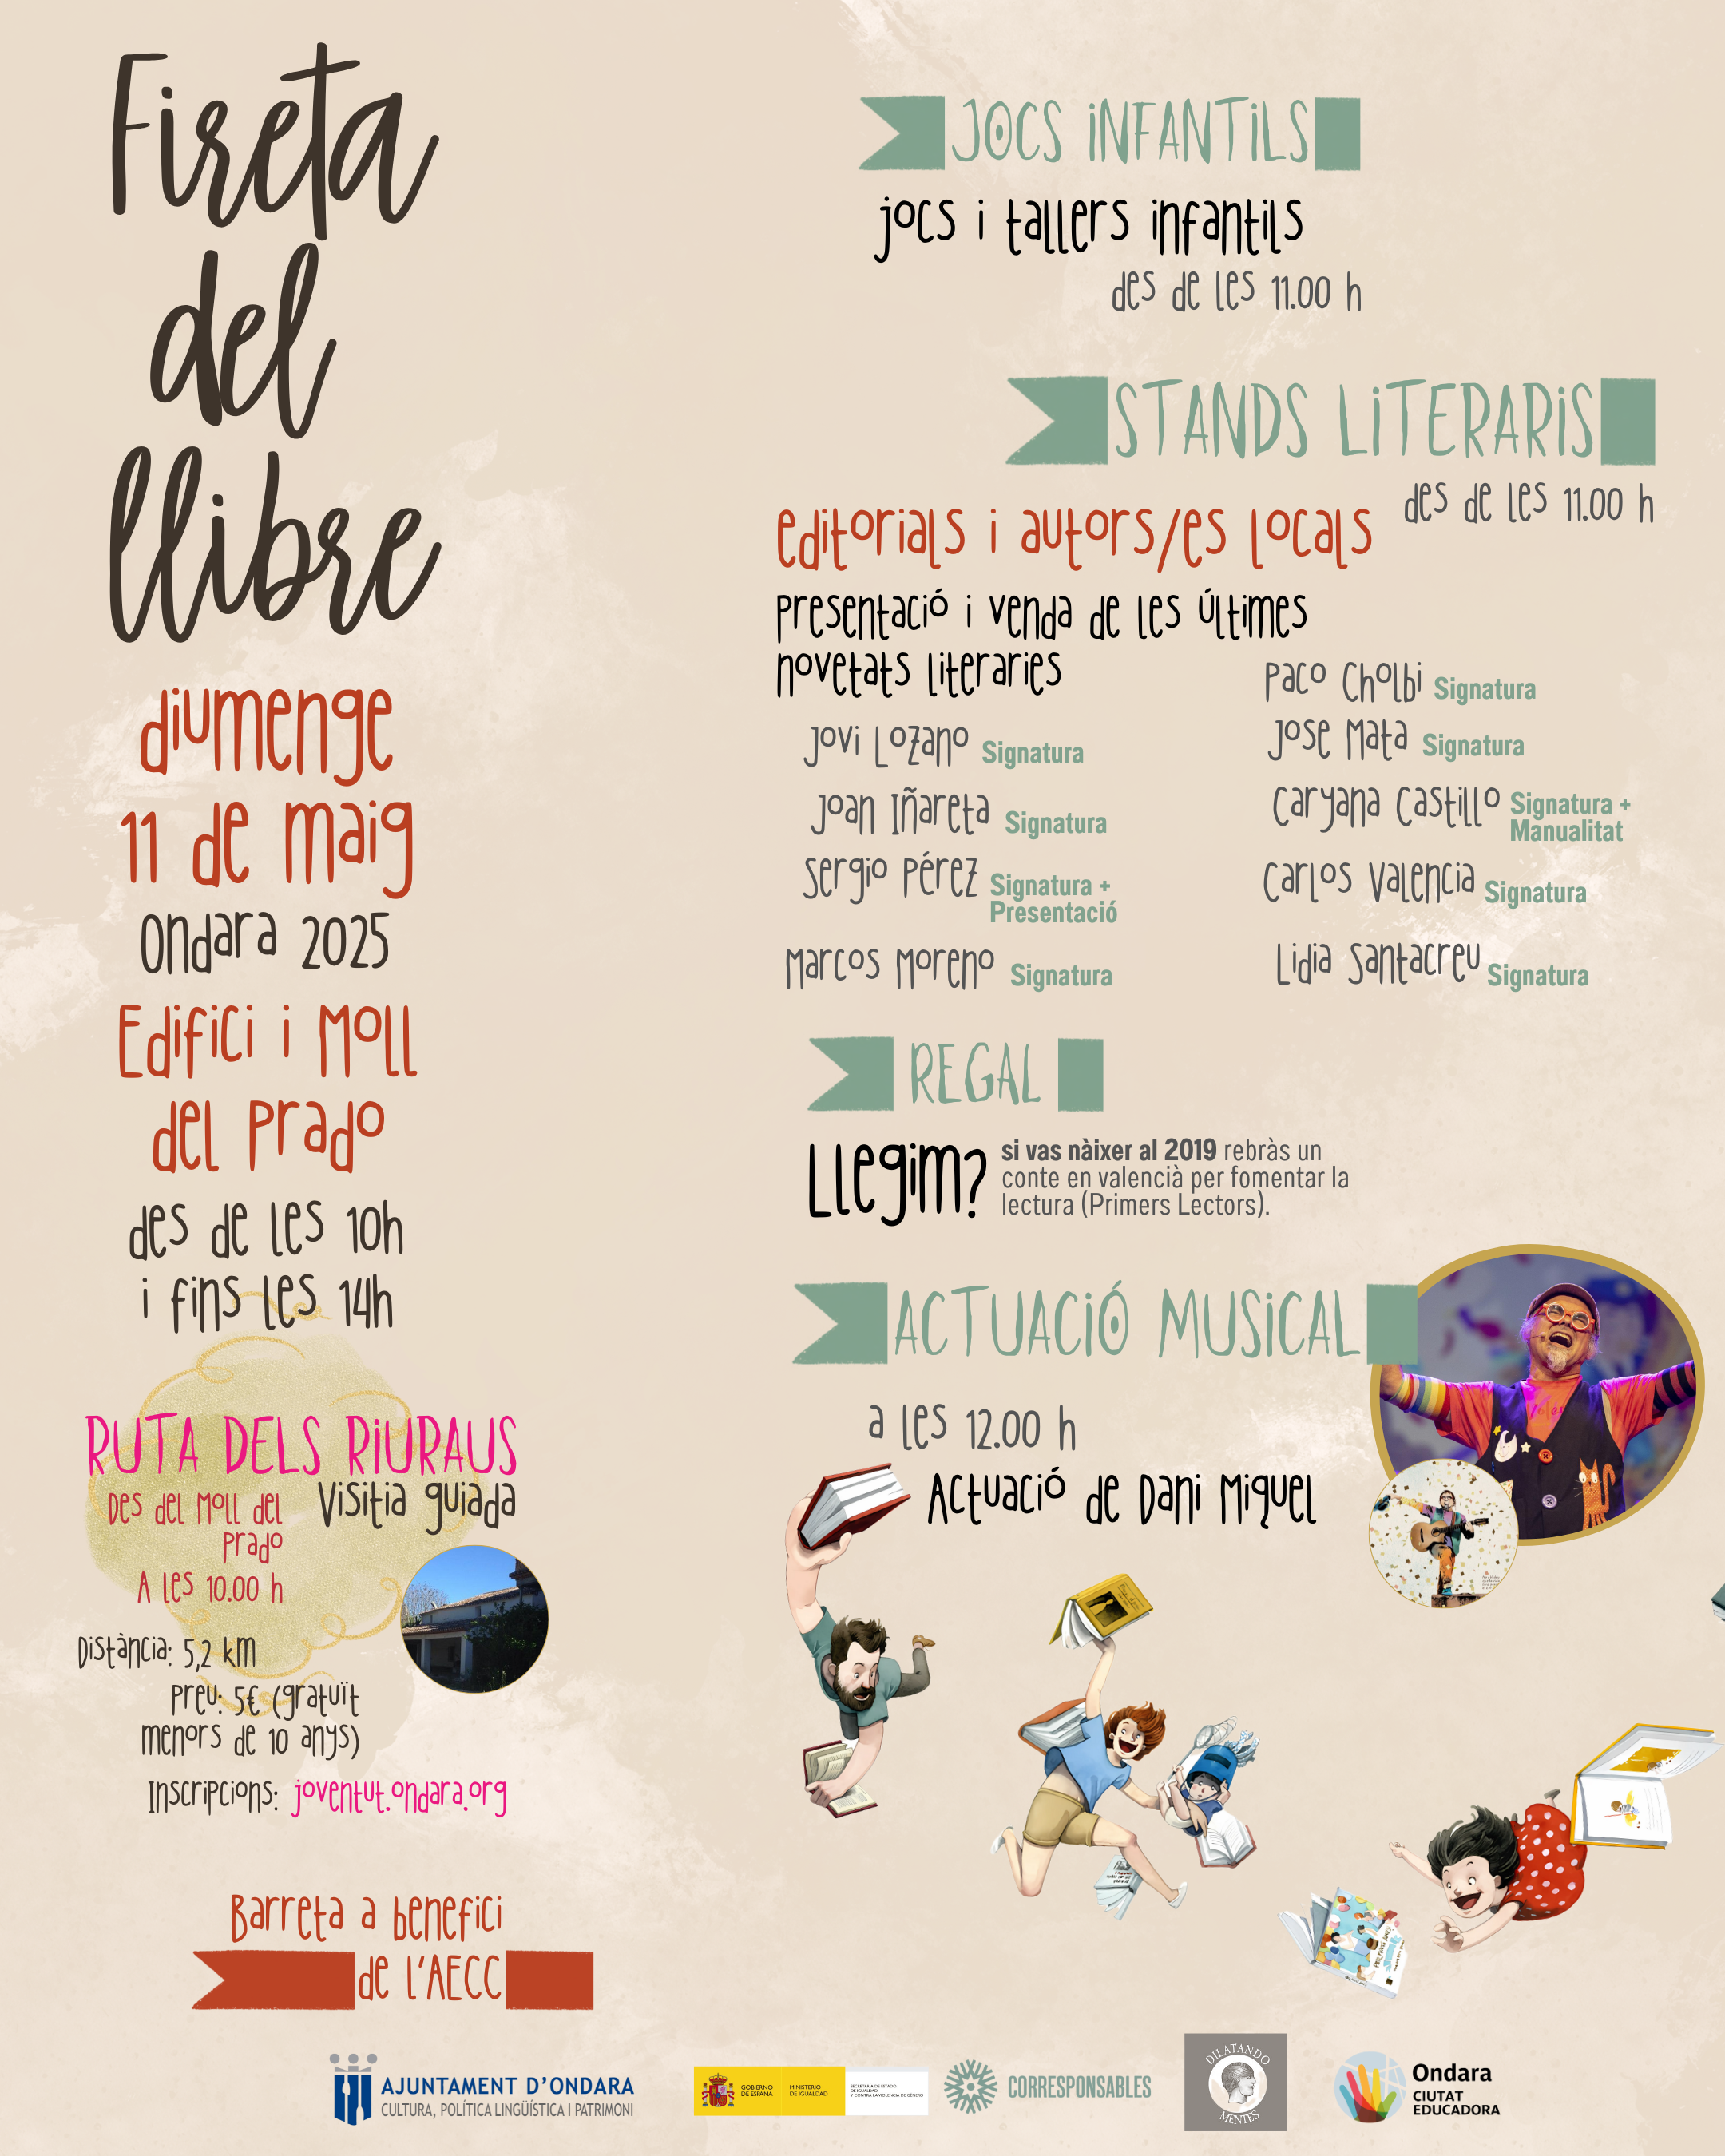 Fireta
del
llibre
diumenge
11 de maig
Ondara 2025
Edifici i Moll
del Prado
des de les 10h
i fins les 14h
RUTA DELS RIURAUS
Visitia guiada
Des del Moll del
Prado
A les 10.00 h
Distància: 5,2 km
Preu: 5€ (gratuït
menors de 10 anys)
Inscripcions: joventut.ondara.org
Barreta a benefici
de l'AECC
JOCS INFANTILS
jocs i tallers infantils
des de les 11.00 h
STANDS LITERARIS
des de les 11.00 h
editorials i autors/es locals
Presentació i venda de les últimes
novetats literaries
Jovi Lozano Signatura
Joan Iñareta Signatura
Sergio Pérez Signatura +
Presentació
Marcos Moreno Signatura
Paco Cholbi Signatura
Jose Mata Signatura
Caryana Castillo Signatura +
Manualitat
Carlos Valencia Signatura
Lidia Santacreu Signatura
REGAL
Llegim?
si vas nàixer al 2019 rebràs un
conte en valencià per fomentar la
lectura (Primers Lectors).
ACTUACIÓ MUSICAL
a les 12.00 h
Actuació de Dani Miquel
AJUNTAMENT D'ONDARA
CULTURA, POLÍTICA LINGÜÍSTICA I PATRIMONI
GOBIERNO
DE ESPAÑA
MINISTERIO
DE IGUALDAD
SECRETARÍA DE ESTADO
DE IGUALDAD
Y CONTRA LA VIOLENCIA DE GÉNERO
CORRESPONSABLES
DILATANDO
MENTES
Ondara
CIUTAT
EDUCADORA